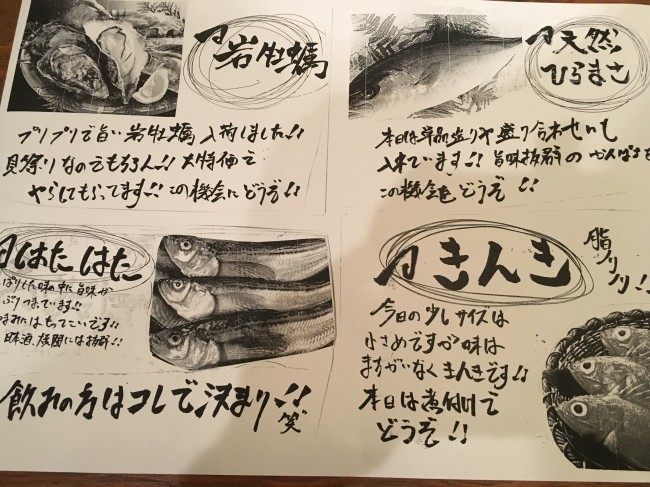 岩牡蠣
プリプリで旨い岩牡蠣入荷しました!!
貝祭りなのでもちろん!! 大特価で
やらしてもらってます!! この機会にどうぞ!!
天然
ひらまさ
本日は単品盛りや盛り合わせにも
入れています!!! 旨味抜群の かんぱちを
この機会をどうぞ!!
はたはた
ぱりした味の中に旨味が
ぷりつまっています!!
つまみにはもってこいです!!
日本酒、 には抜群!!
飲れの方はコレで決まり!! 笑
きんき
脂ノリノリ!!
今日の少しサイズは
小さめですが味は
まちがいなくきんきです!!
本日は煮付けで
どうぞ!!